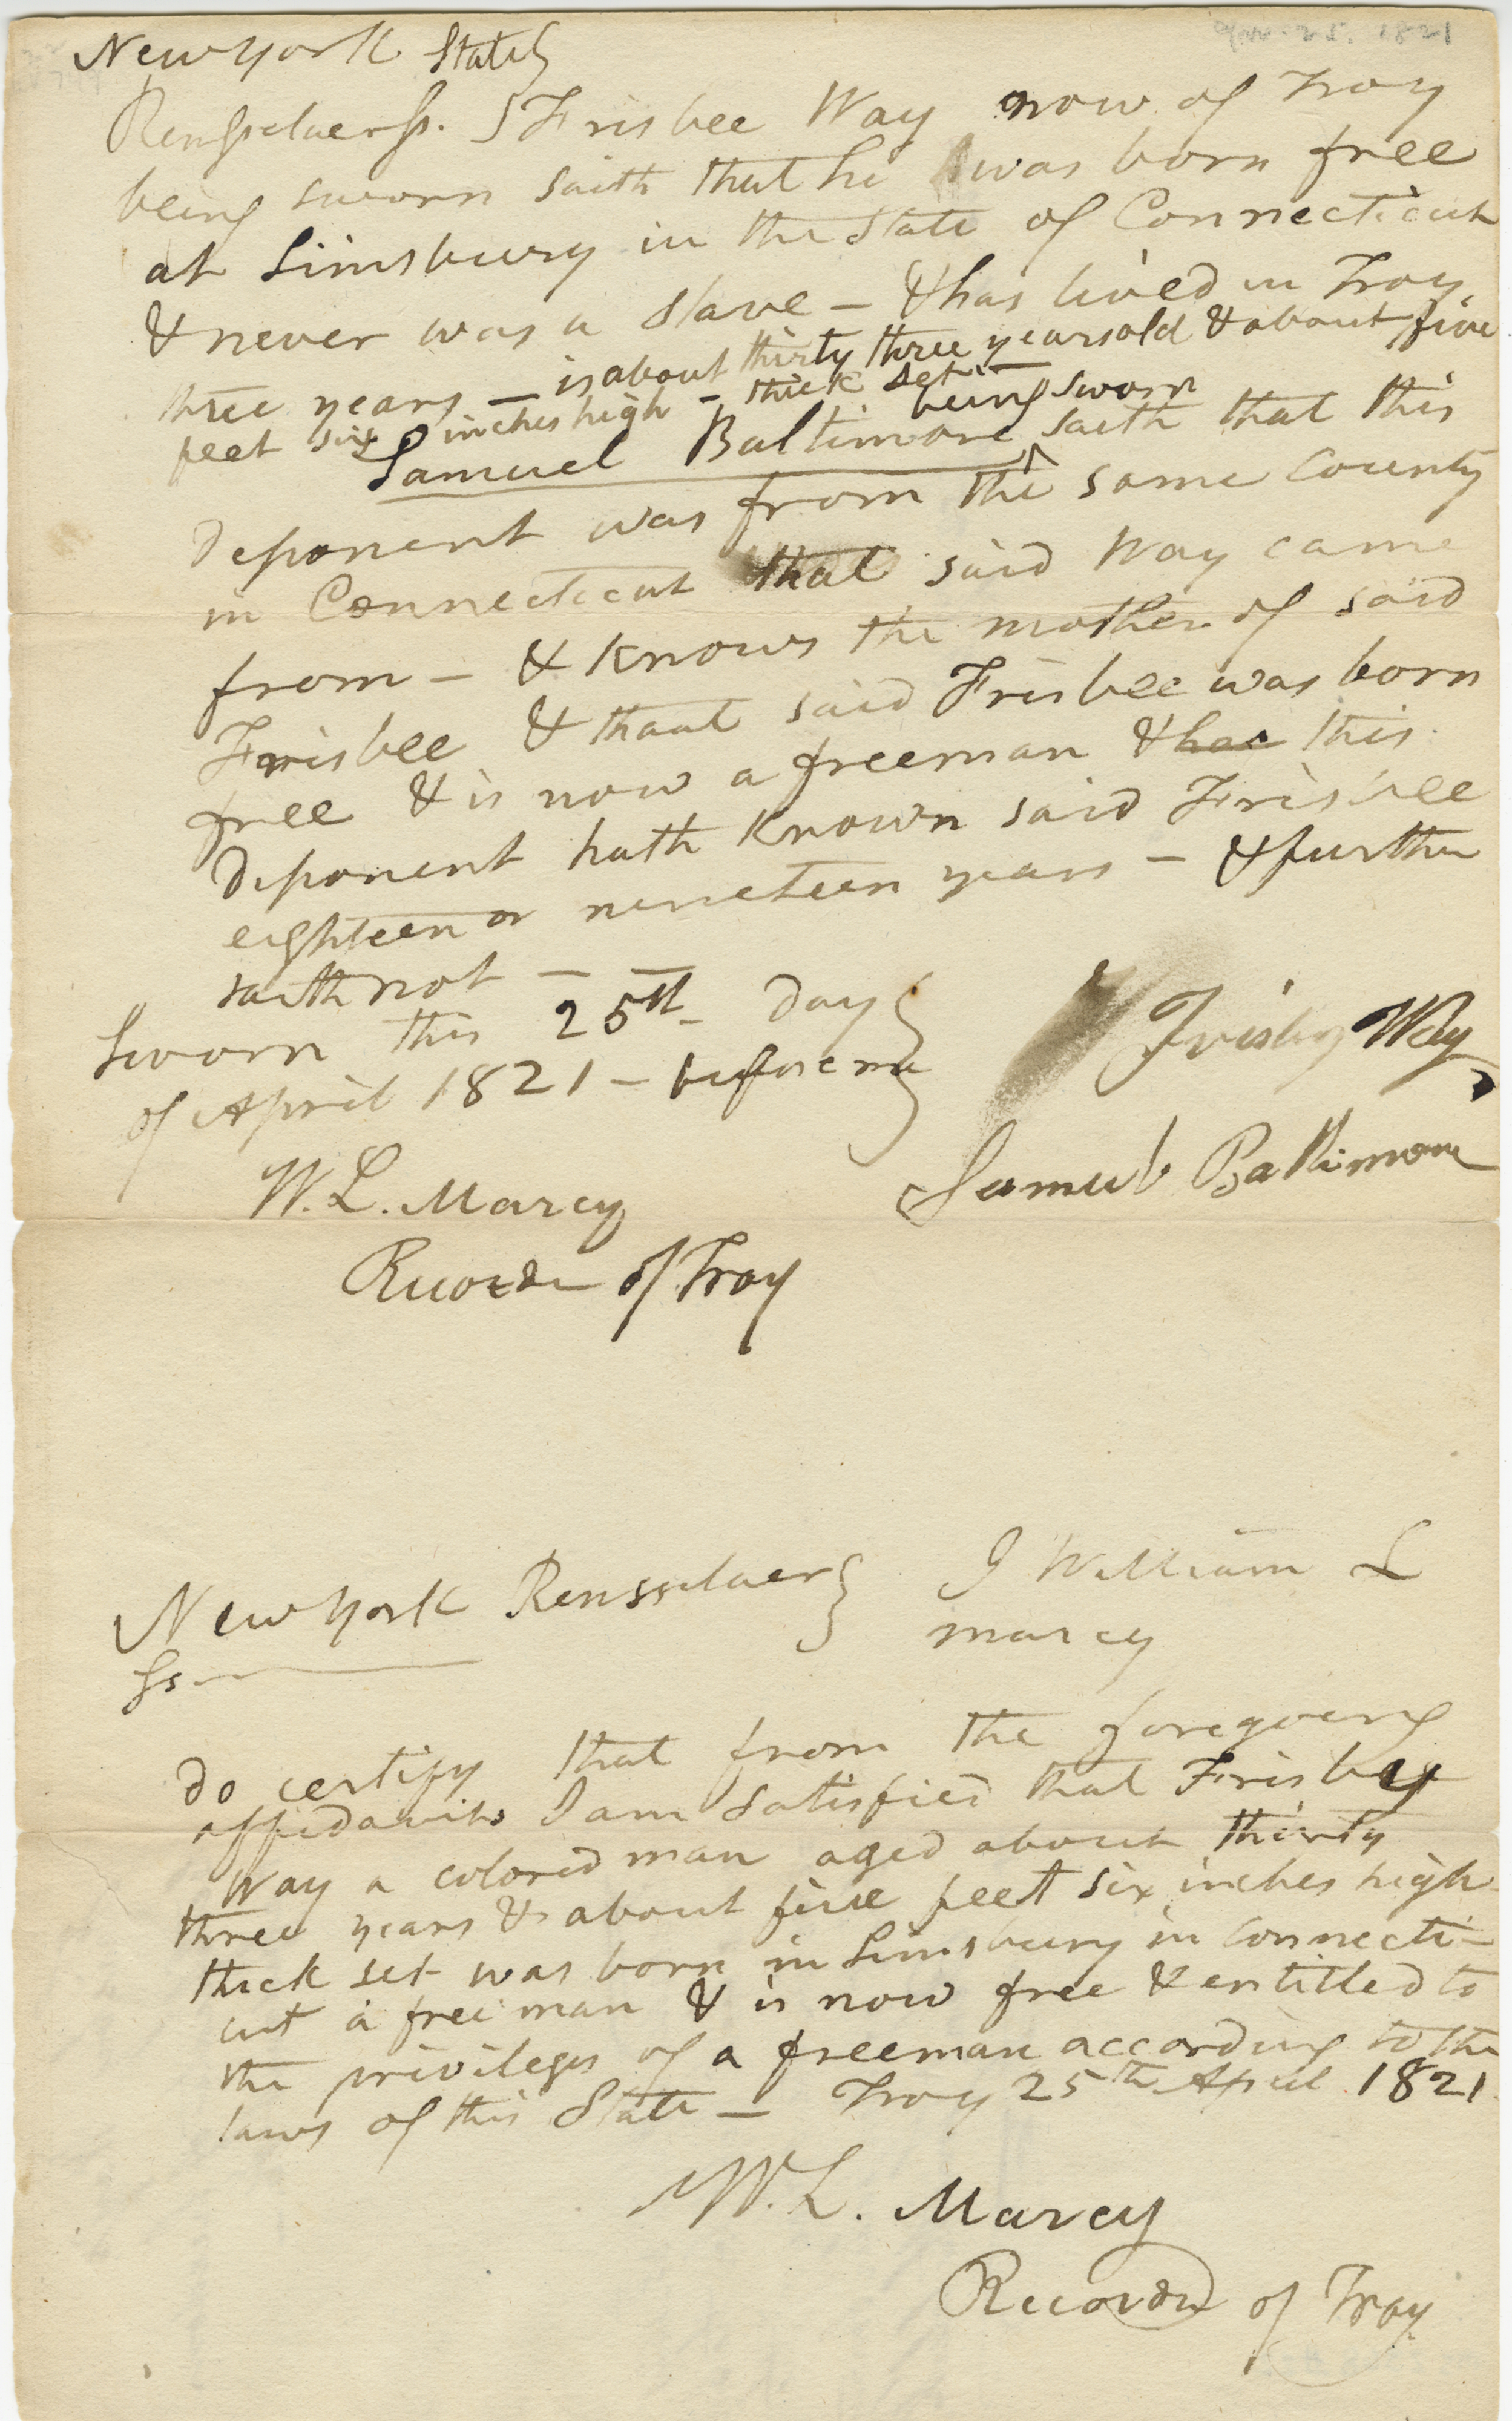 New York State}
Rensselaer ss. } Frisbee Way now of Troy
being sworn saith that he was born free
at Simsbury in the State of Connecticut
& never was a slave — & has lived in Troy
three years — is about thirty three years old & about five
feet six inches high — thick set —
Samuel Baltimore being sworn saith that this
deponent was from the same County
in Connecticut that said Way came
from — & knows the mother of said
Frisbee & thaat said Frisbee was born
free & is now a freeman & has this
deponent hath known said Frisbee
eighteen or nineteen years — & further
saith not —
Sworn this 25th day }
of April 1821 — before me }
Frisby Way
Samuel Baltimore
W. L. Marcy
Recorder of Troy
New York Rensselaer } I William L
ss marcy
do certify that from the foregoeing
affidavits I am satisfied that Frisbey
Way a colored man aged about thirty
three years & about five feet six inches high
thick set was born in Simsbury in Connecti-
cut a free man & is now free & entitled to
the privileges of a freeman according to the
laws of this State — Troy 25th April 1821
W. L. Marcy
Recorder of Troy